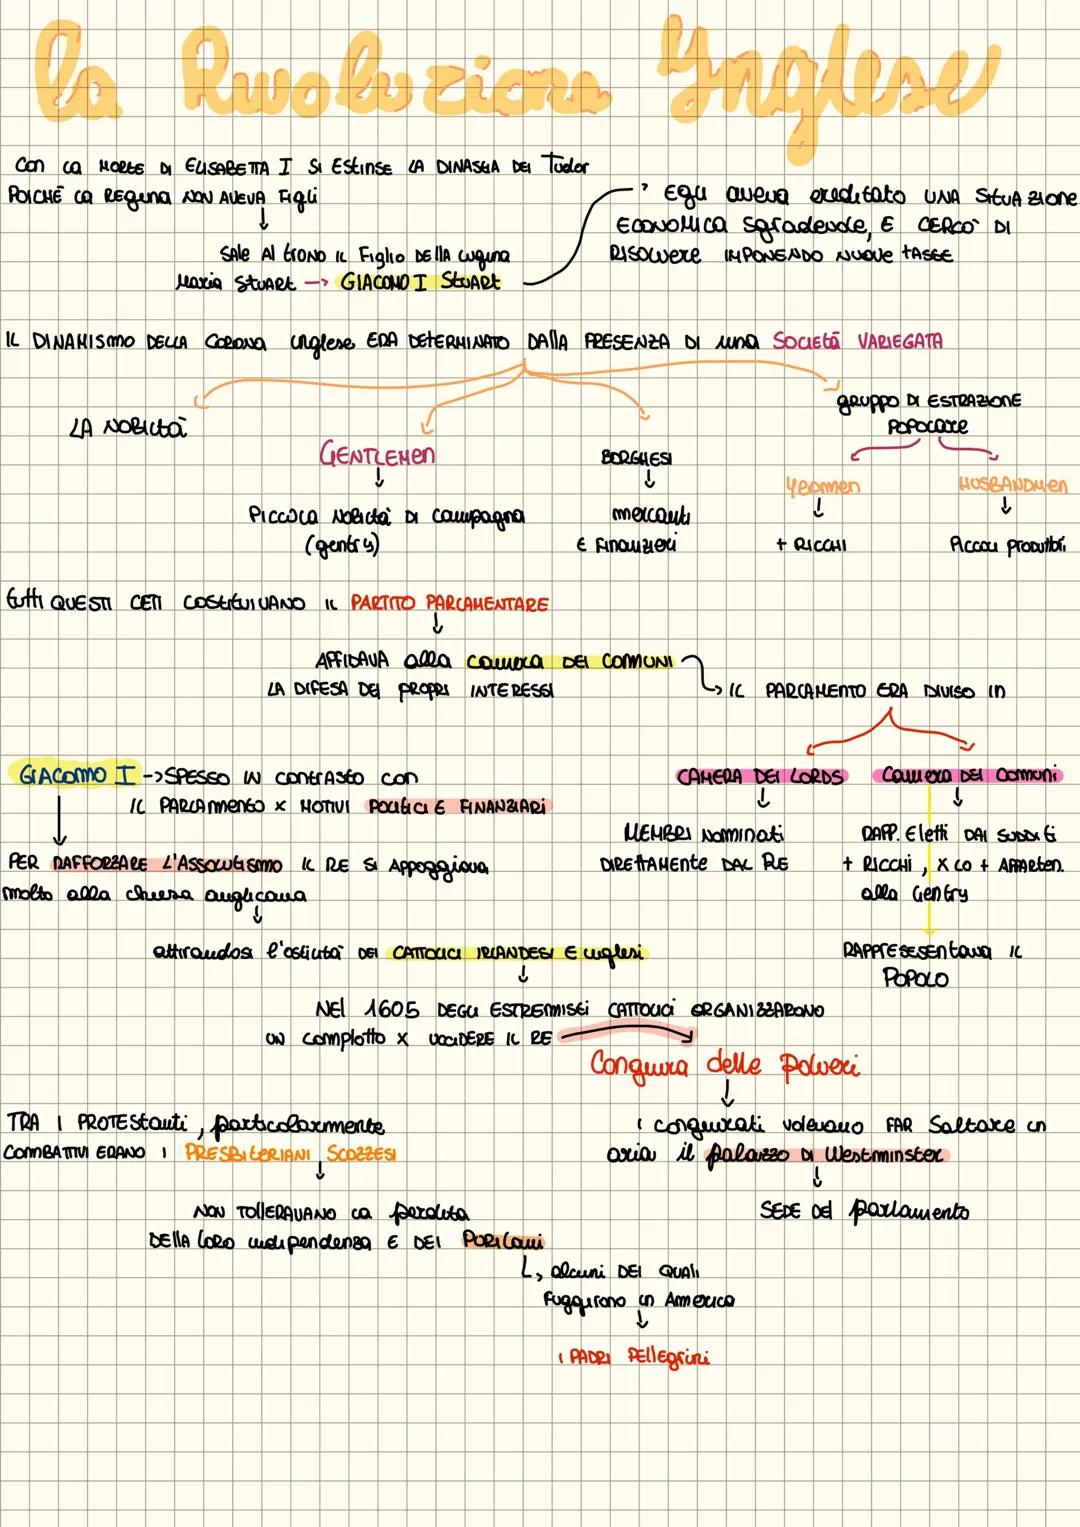 la Rivoluzione Inglese
Con la MORTE DI ELISABETTA I SI Estinse LA DINASTIA DEI Tudor
POICHÉ la Regina NON AVEVA Figli
↓
SALE Al trono IL Figlio DELLA cugina
Maria STUART -> GIACOMO I STUART
Egli aveva ereditato UNA SITUAZIONE
ECONOMICA Sgradevole, E CERCÒ DI
RISOLVERE IMPONENDO NUOVE TASSE
IL DINAMISMO DELLA CORONA inglese ERA DETERMINATO DALLA PRESENZA DI una SOCIETÀ VARIEGATA
LA NOBILTÀ
GENTLEMEN
↓
PICCOLA NOBILTÀ DI campagna
(gentry)
BORGHESI
↓
mercanti
E Finanzieri
gRUPPO DI ESTRAZIONE
POPOLARE
Yeomen
↓
+ RICCHI
HUSBANDMEN
↓
Piccoli produttori
tutti QUESTI CETI COSTITUIVANO IL PARTITO PARLAMENTARE
↓
AFFIDAVA alla camera DEI COMUNI
LA DIFESA DEI PROPRI INTERESSI
-> IL PARLAMENTO ERA DIVISO in
CAMERA DEI LORDS
↓
MEMBRI Nominati
DIRETTAMENTE DAL RE
Camera DEI Comuni
↓
RAPP. Eletti DAI SUDDITI
+ RICCHI, X LO + APPARTEN.
alla Gentry
RAPPRESESENTAVA IL
POPOLO
GIACOMO I -> SPESSO IN contrasto con
IL PARLAMMENTO X MOTIVI POLITICI E FINANZIARI
↓
PER RAFFORZARE L'ASSOLUTISMO IL RE SI Appoggiava
molto alla chiesa anglicana
↓
attirandosi l'ostilità DEI CATTOLICI IRLANDESI E inglesi
↓
NEl 1605 DEGLI ESTREMISTI CATTOLICI ORGANIZZARONO
UN complotto X UCCIDERE IL RE
Congiura delle Polveri
↓
i congiurati volevano FAR Saltare in
aria il palazzo DI Westminster
↓
SEDE DEl parlamento
TRA I PROTEStanti, particolarmente
COMBATTIVI ERANO I PRESBITERIANI SCOZZESI
↓
NON TOLLERAVANO la perdita
DELLA loro indipendenza E DEI PURITANI
alcuni DEI QUALI
Fuggirono in America
↓
I PADRI PELLEGRINI